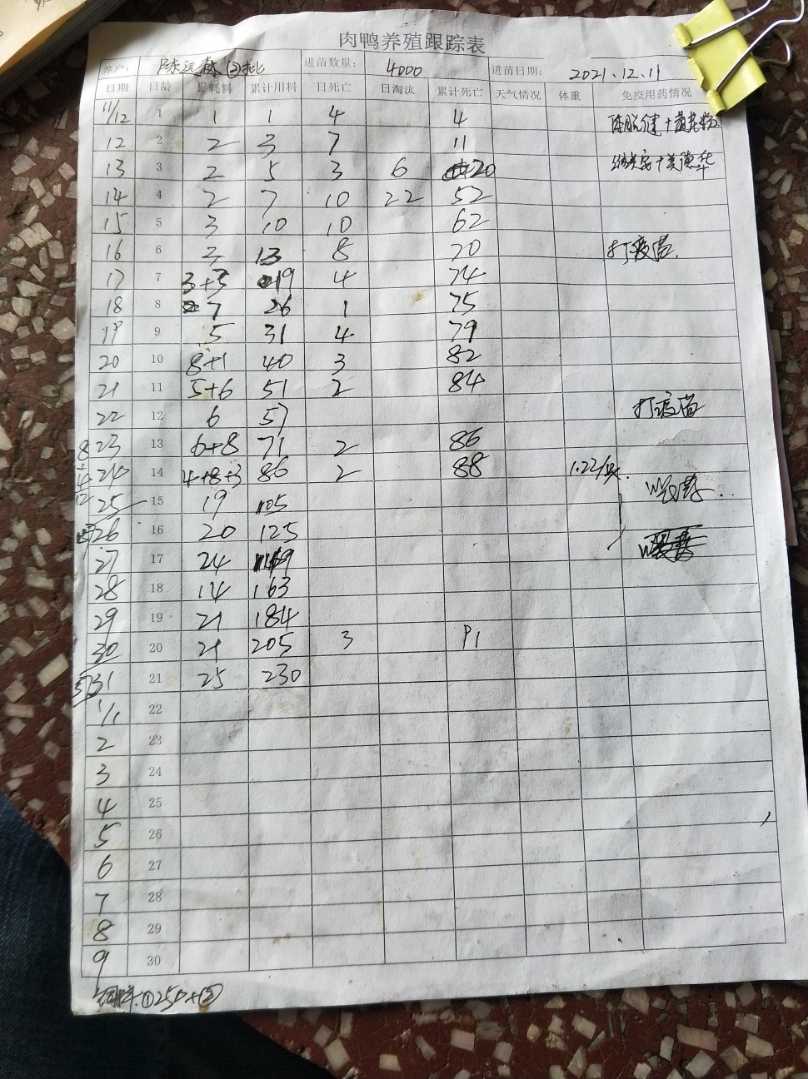 肉鸭养殖跟踪表
养户: 陈 ②批 进苗数量: 4000 进苗日期: 2021.12.11
日期 日龄 日耗料 累计用料 日死亡 日淘汰 累计死亡 天气情况 体重 免疫用药情况
11/12 1 1 1 4 4
12 2 2 3 7 11
13 3 2 5 3 6 20
14 4 2 7 10 22 52
15 5 3 10 10 62
16 6 13 8 70 打疫苗.
17 7 3+3 19 4 74
18 8 7 26 1 75
19 9 5 31 4 79
20 10 8+1 40 3 82
21 11 5+6 51 2 84
22 12 6 57 打疫苗
23 13 6+8 71 2 86
24 14 4+8+3 86 2 88 1.22/
25 15 19 105
26 16 20 125
27 17 24 149
28 18 14 163
29 19 21 184
30 20 21 205 3 91
31 21 25 230
1/1 22
2 23
3 24
4 25
5 26
6 27
7 28
8 29
9 30
①250+②